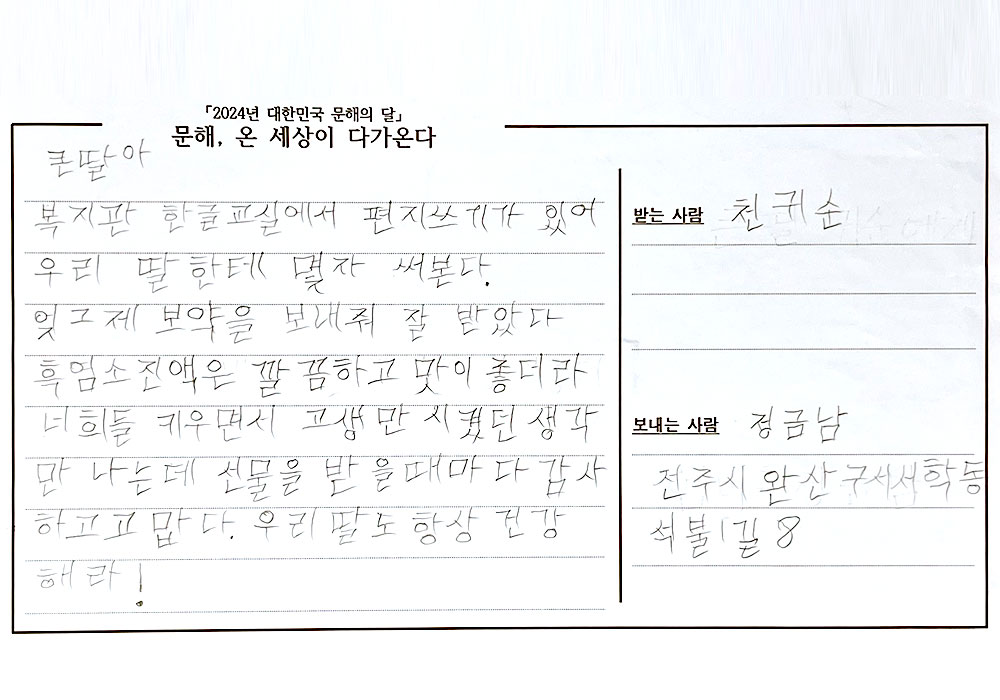 「2024년 대한민국 문해의 달」
문해, 온 세상이 다가온다
큰딸아
복지관 한글교실에서 편지쓰기가 있어
우리 딸한테 몇자 써본다.
엊그제 보약을 보내줘 잘 받았다
흑염소진액은 깔끔하고 맛이 좋더라
너희들 키우면서 고생만 시켰던 생각
만 나는데 선물을 받을때마다 감사
하고고맙다. 우리딸도 항상 건강
해라!
받는 사람 천귀순
보내는 사람 정금남
전주시 완산구서서학동
석불1길 8